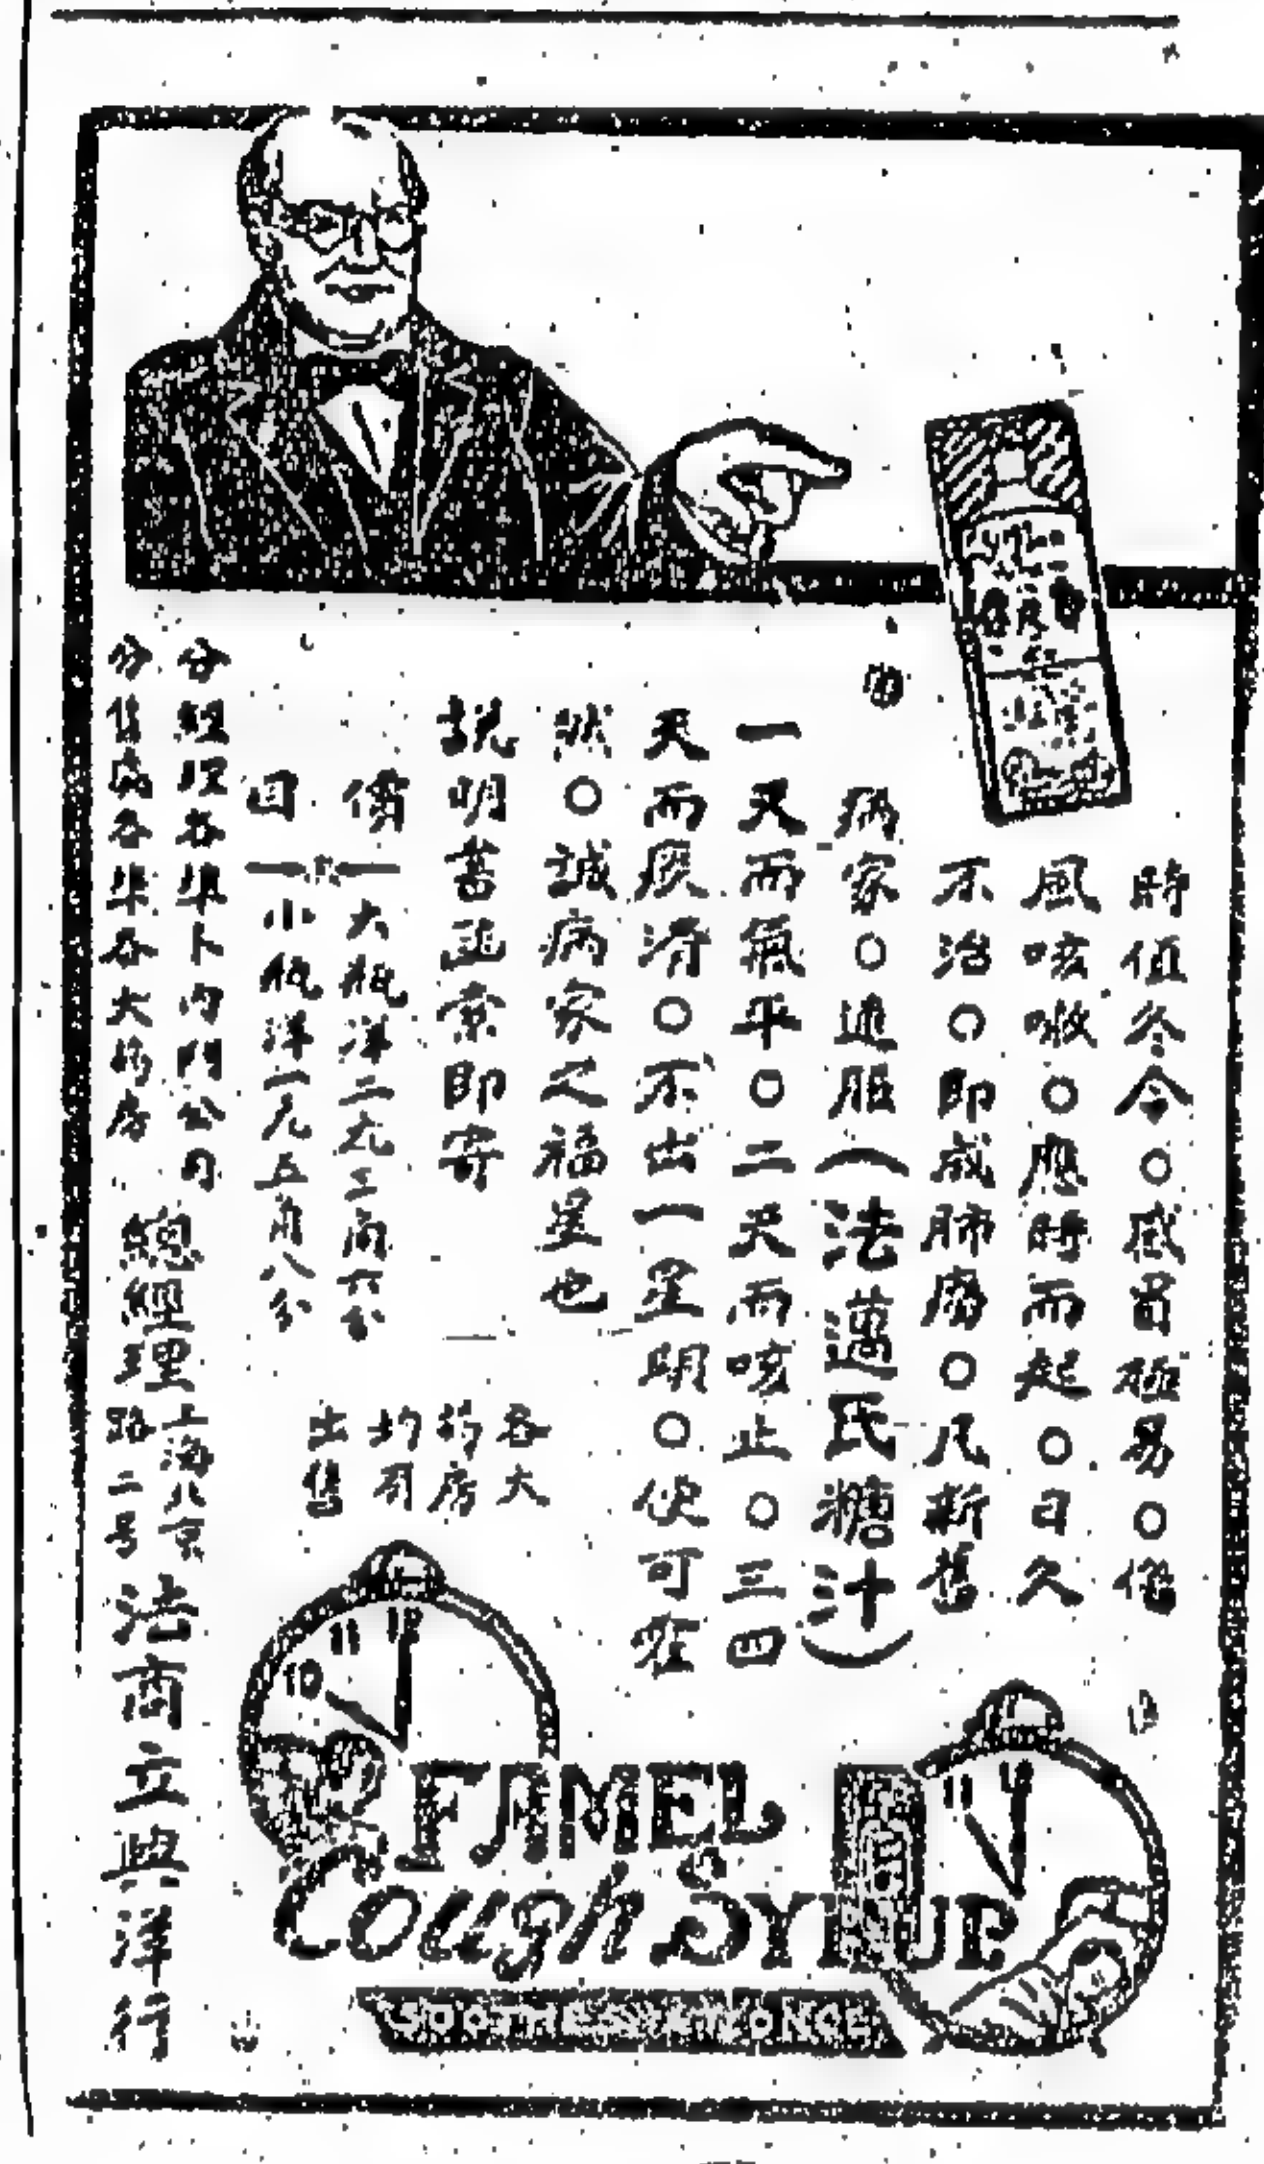 時值冬令○感冒極易○偶
風咳嗽○應時而起○日久
不治○即成肺癆○凡新舊
病家○速服(法邁氏糖汁)
一天而氣平○二天而咳止○三四
天而痰清○不出一星期○便可痊
○誠病家之福星也
說明書函索即寄
價 大瓶洋二元三角六分
目 小瓶洋一元五角八分
各大
藥房
均有
出售
分經理各埠卜內門公司
分售處各埠各大藥房
總經理
上海
路二号
法商立興洋行
10 11 12
FAMEL
Cough SYRUP
SOOTHES AT ONCE
11 12